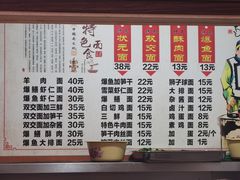 特色面食
状元面
38元
双交面
22元
酥肉面
13元
爆鱼面
13元
羊肉面 40元
爆鳝虾仁面 30元
爆鱼虾仁面 30元
双交面加三鲜 35元
双交面加笋干 35元
双交面加杂酱 30元
爆鳝酥肉 30元
爆鱼大排面 25元
爆鱼面加笋干 22元
雪菜虾仁面 22元
白切鸡面 15元
三鲜面 15元
特色牛肉面 15元
笋干肉丝面 15元
雪菜肉丝面 15元
狮子球面 15元
大排面 15元
杂酱面 15元
卤汁面 15元
鸡杂面 15元
素鸡面 10元
加蛋 2元/个
加面 1元